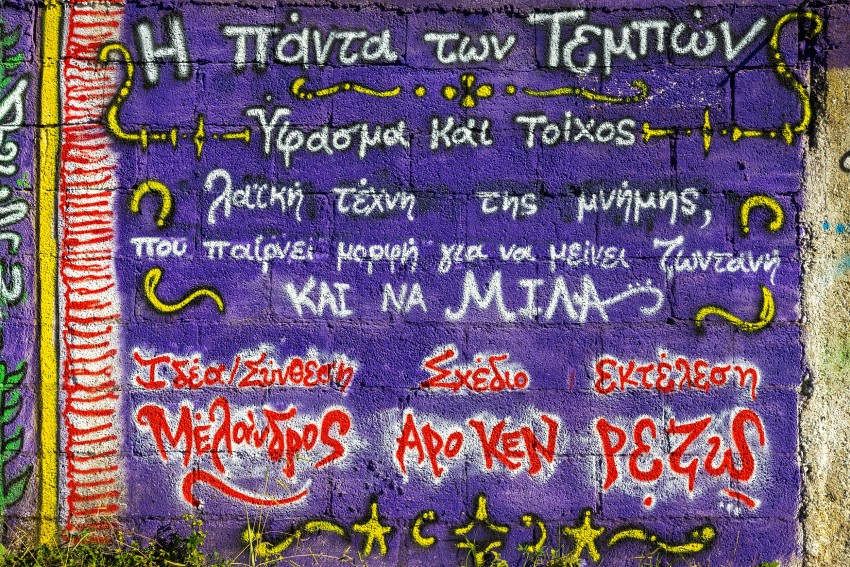 Η πάντα των Τεμπών
Ύφασμα και Τοίχος
λαϊκή τέχνη της μνήμης,
που παίρνει μορφή για να μείνει ζωντανή
ΚΑΙ ΝΑ ΜΙΛΑ
Ιδέα/Σύνθεση Σχέδιο Εκτέλεση
Μέλανδρος ΑΡΟ ΚΕΝ Ρέζυς